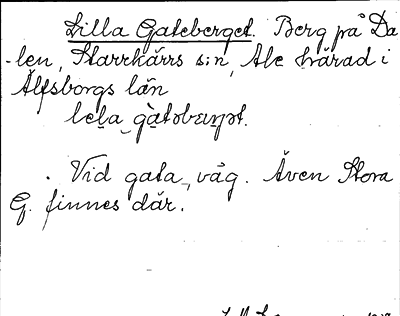 Lilla Gateberget. Berg på Da
-len, Starrkärrs s:n, Ale härad i
Älfsborgs län
Vid gata, väg. Även Stora
G. finnes där.